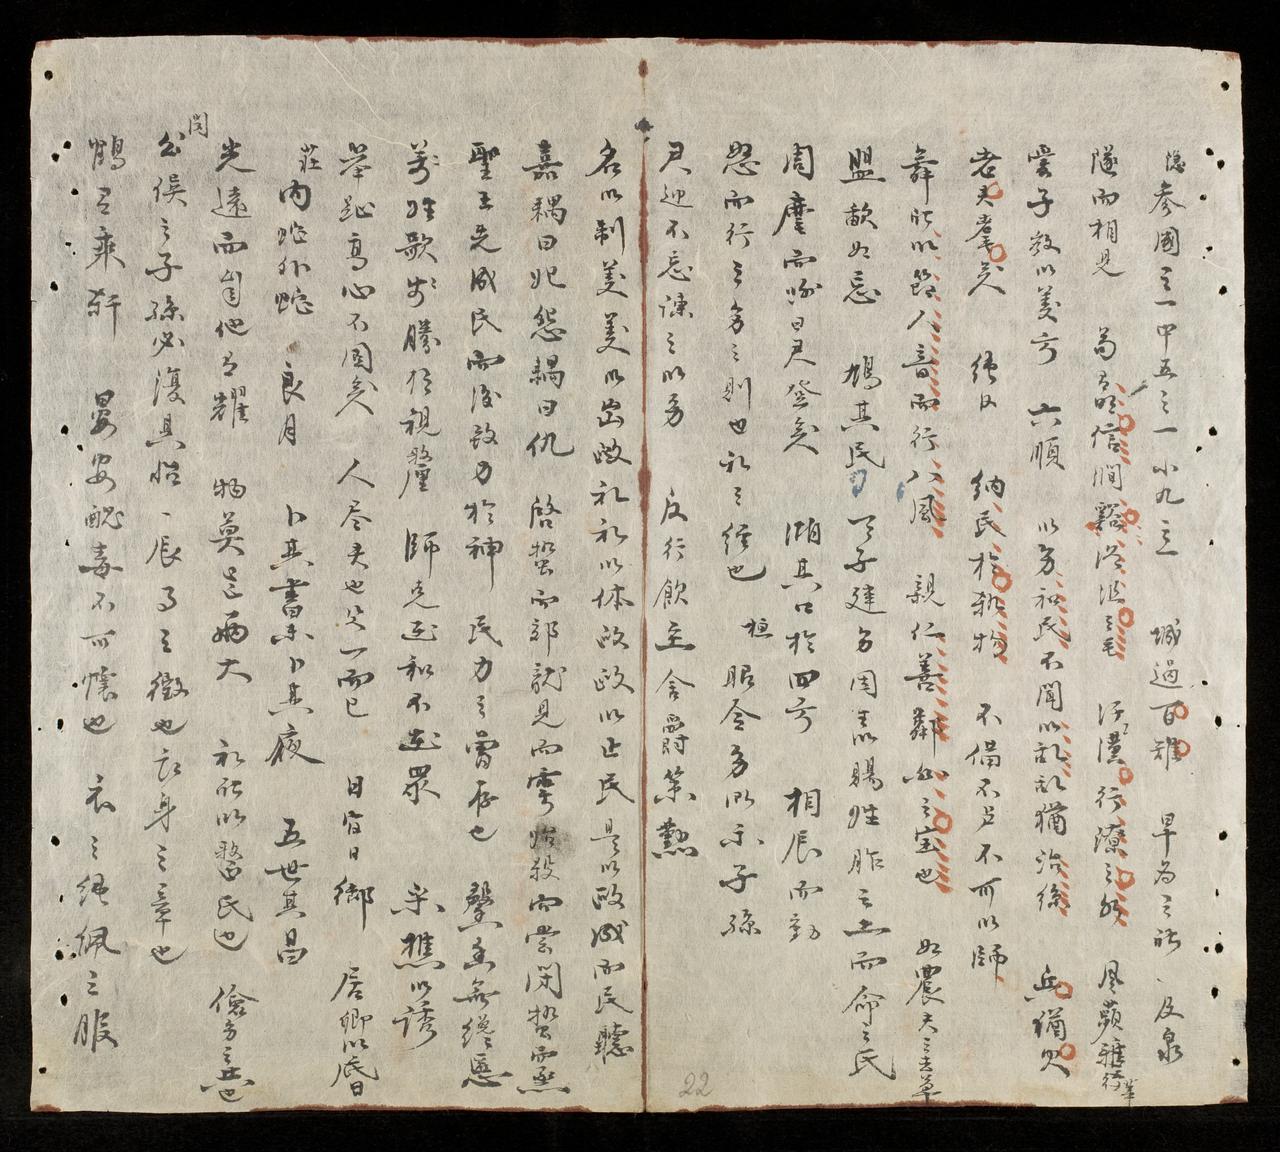 隱參國之一中五之一小九之一 城過百雉 早為之所 及泉
隧而相見 苟有明信澗谿沼沚之毛 汙潢行潦之水 風蘋雅行葦
愛子敎以義方 六順 以务和民不聞以乱乱猶治絲 兵猶火
老夫耄矣 純臣 納民於軌物 不備不虞不可以師
舞所以節八音而行八風 親仁善鄰國之宝也 如農夫之去草
盟歃如忘 鳩其民 天子建务因生以賜姓胙之土而命之氏
周麾而呼曰君登矣 餬其口於四方 相辰而動
恕而行之务之則也礼之經也 桓 昭令务以示子孫
君違不忘諫之以务 反行飲至舍爵策勲
名以制義義以出政礼礼以体政政以正民是以政成而民聽
嘉耦曰妃怨耦曰仇 啓蟄而郊龍見而雩始殺而嘗閉蟄而烝
聖王先成民而後致力於神 民力之普存也 馨香無讒慝
師克在和不在眾 采樵以誘
举趾高心不固矣 人尽夫也父一而已 日官日御 居卿以底日
莊 内蛇外蛇 良月 卜其晝未卜其夜 五世其昌
光遠而自他有耀 物莫能兩大 礼所以整民也 儉务之共也
閔
公侯之子孫必復其始 辰事之徵也衣身之章也
鶴有乘軒 晏安酖毒不可懷也 衣之純佩之服
22